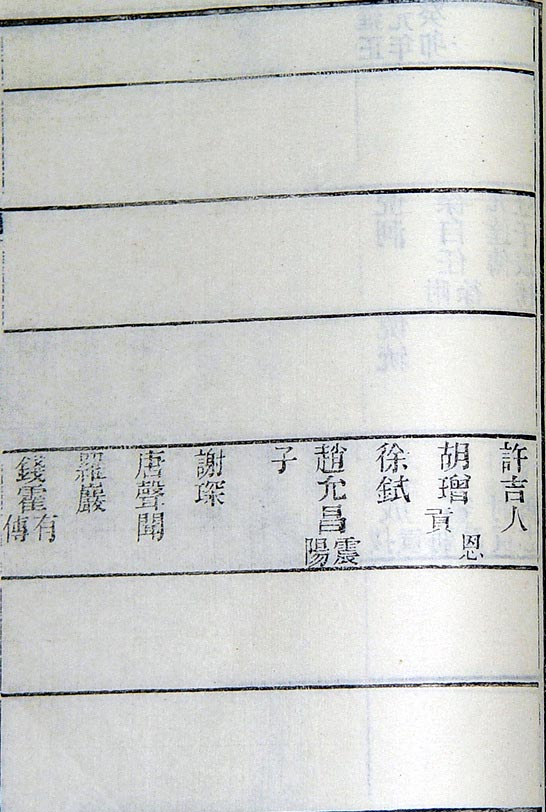 許吉人
胡璔恩貢
徐鉽
趙允昌震陽
子
謝琛
唐聲聞
羅巖
錢霍有傳